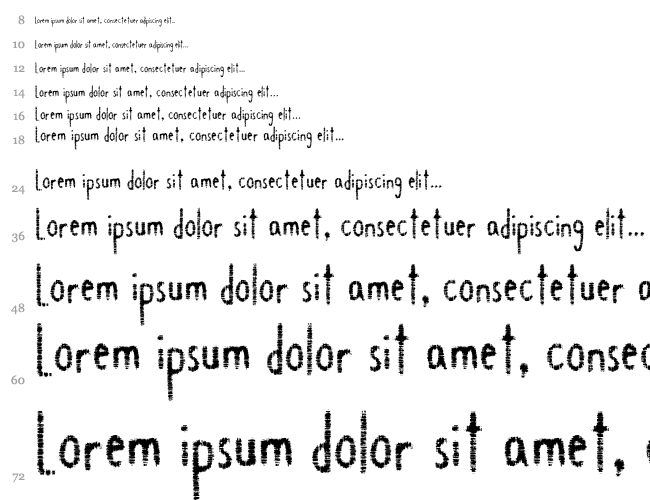 8 Lorem ipsum dolor sit amet, consectetuer adipiscing elit...
10 Lorem ipsum dolor sit amet, consectetuer adipiscing elit...
12 Lorem ipsum dolor sit amet, consectetuer adipiscing elit...
14 Lorem ipsum dolor sit amet, consectetuer adipiscing elit...
16 Lorem ipsum dolor sit amet, consectetuer adipiscing elit...
18 Lorem ipsum dolor sit amet, consectetuer adipiscing elit...
24 Lorem ipsum dolor sit amet, consectetuer adipiscing elit...
36 Lorem ipsum dolor sit amet, consectetuer adipiscing elit...
48 Lorem ipsum dolor sit amet, consectetuer a
60 Lorem ipsum dolor sit amet, consec
72 Lorem ipsum dolor sit amet,